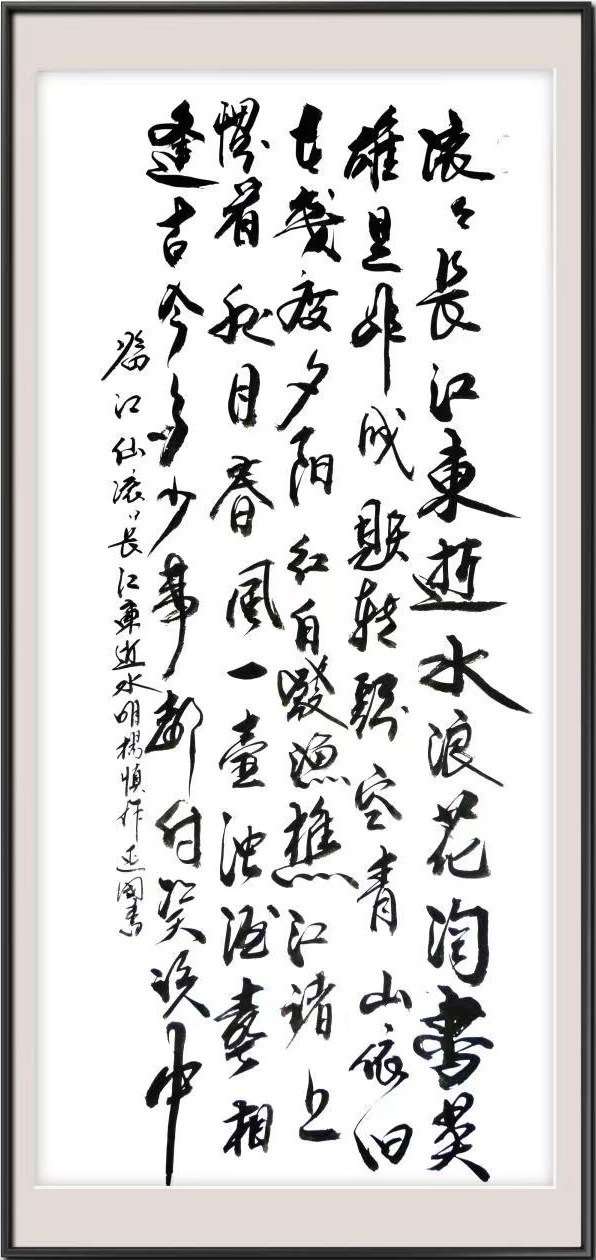 滚々長江東逝水浪花淘盡英
雄是非成敗轉頭空青山依旧
在幾度夕陽红白髮渔樵江渚上
惯看秋月春風一壺浊酒喜相
逢古今多少事都付笑谈中
临江仙滚々長江東逝水明楊慎作國書